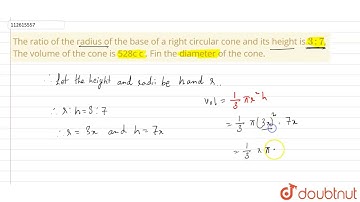 112615557
The ratio of the radius of the base of a right circular cone and its height is 3 : 7.
The volume of the cone is 528c c. Fin the diameter of the cone.
∴ let the height and radii be h and r.
∴ r : h = 3 : 7
∴ r = 3x and h = 7x
Vol = 1/3 πr²h
= 1/3 π(3x)² · 7x
= 1/3 × π ·
doubtnut